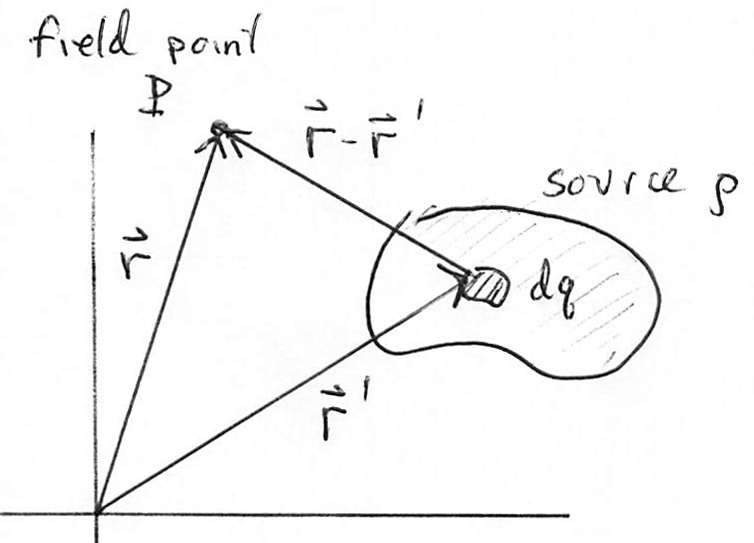 field point
P
r⃗ - r⃗ '
source ρ
r⃗
dq
r⃗ '